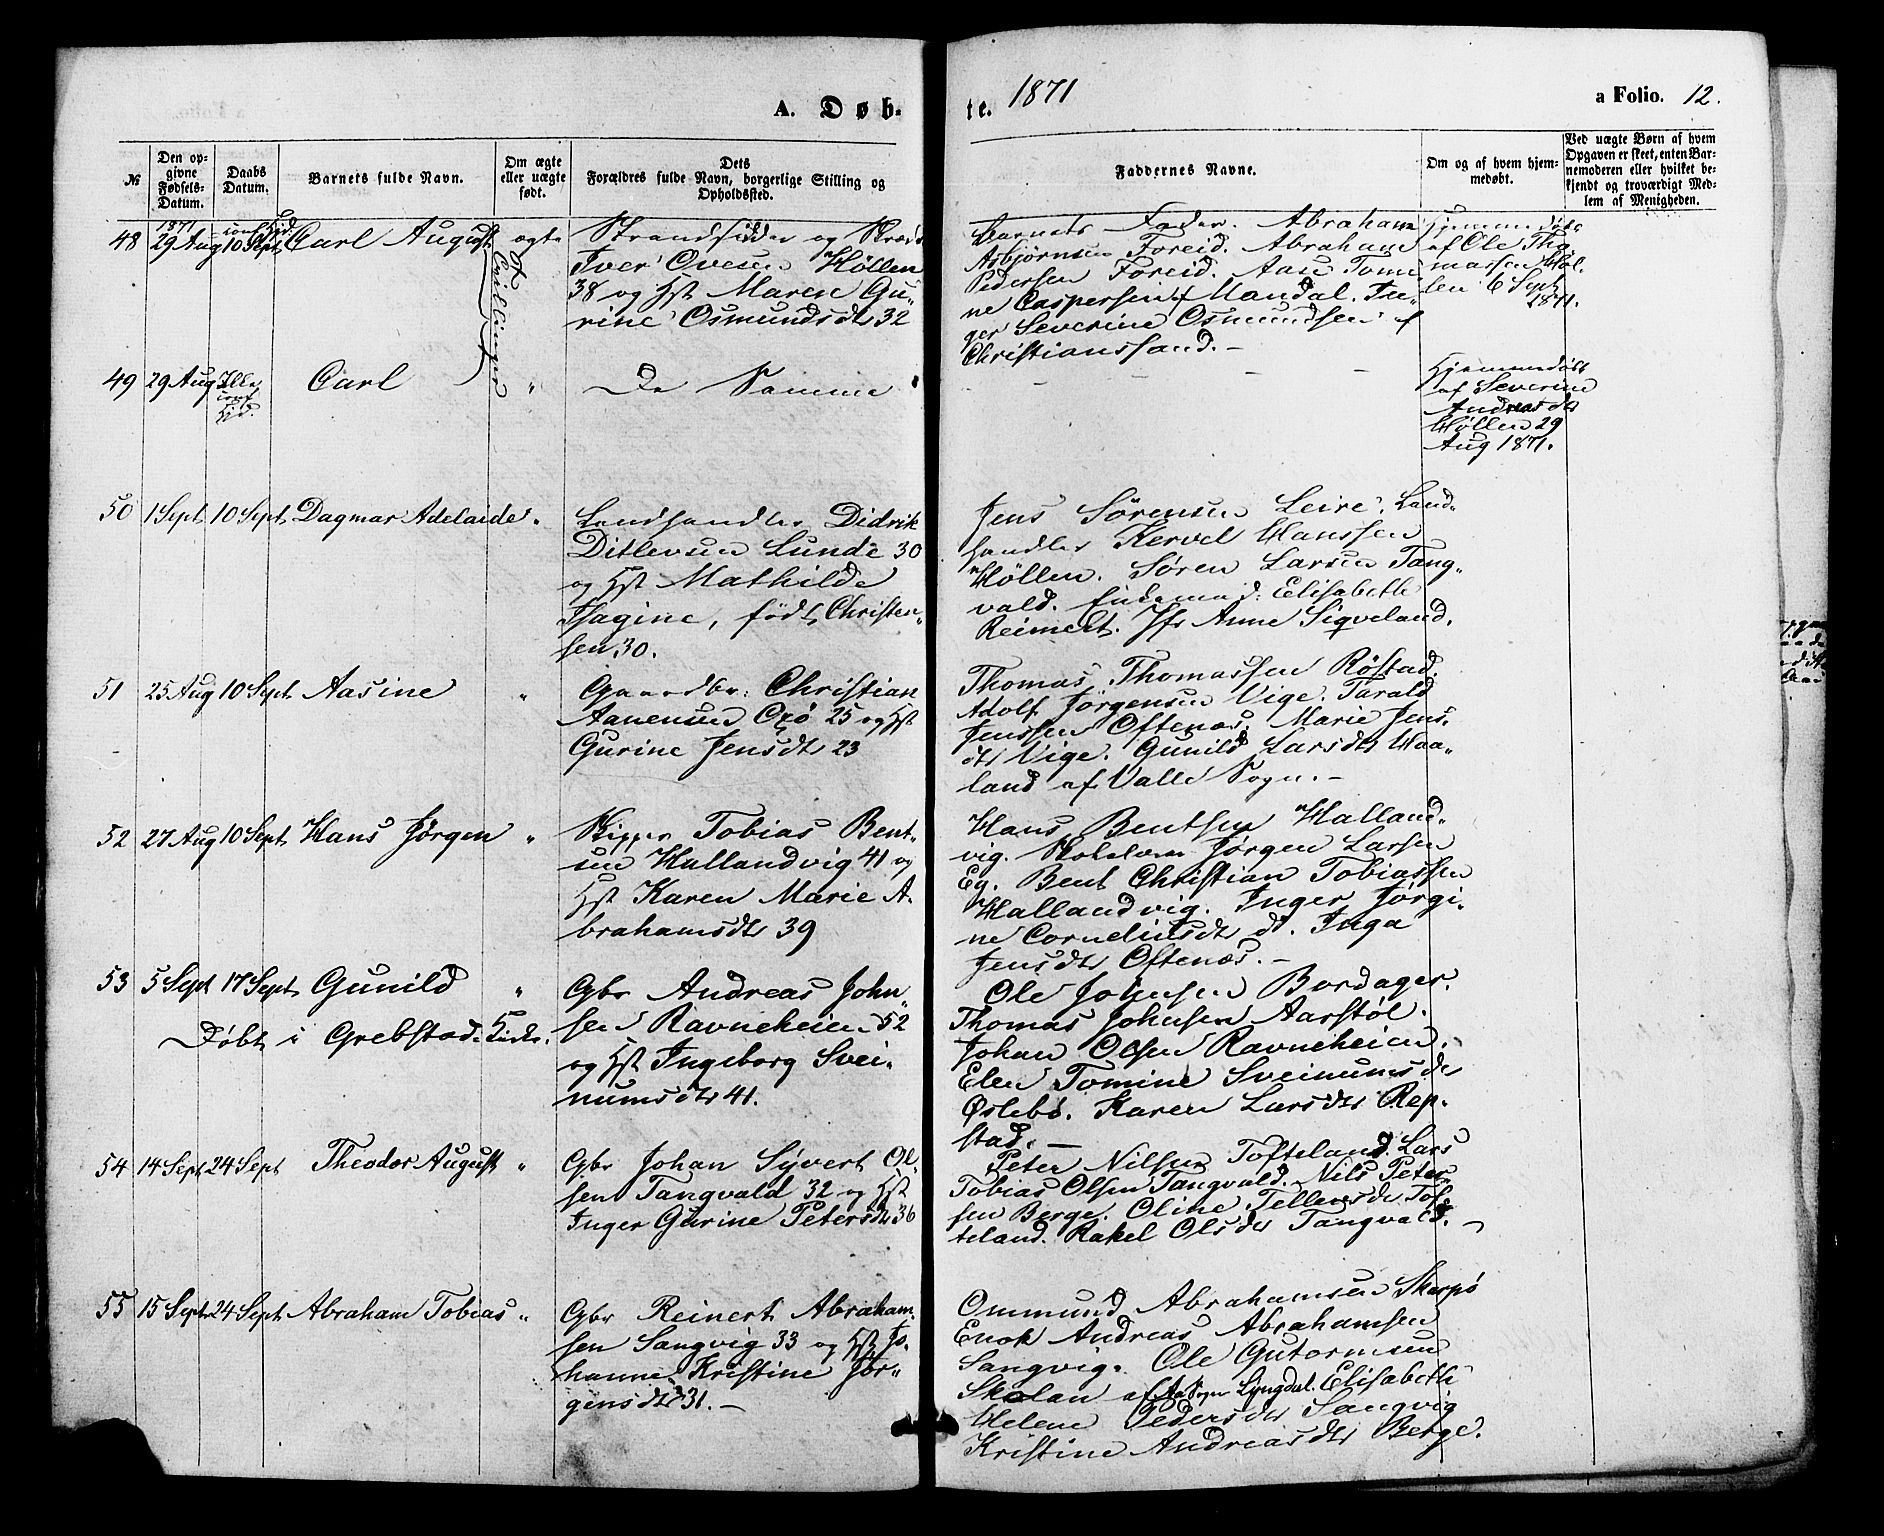 A. Døb-
te. 1871
a Folio. 12.
№
Den op-
givne
Fødsels-
Datum.
Daabs
Datum.
Barnets fulde Navn.
Om ægte
eller uægte
født.
Dets
Forældres fulde Navn, borgerlige Stilling og
Opholdssted.
Faddernes Navne.
Om og af hvem hjem-
medøbt.
Ved uægte Børn af hvem
Opgaven er skeet, enten Bar-
nemoderen eller hvilket be-
kjendt og troværdigt Med-
lem af Menigheden.
1871 conf Hjd.
48 29 Aug 10 Sept Carl August ægte
Tvillinger
Strandsidder og
Iver Ovesen Høllen
38 og Hst Maren Gu-
rine Osmundsdtr 32
Barnets Fader. Abraham
Asbjørnsen Foreid. Abraham
Pedersen Foreid. Aase Tomi-
ne Caspersen af Mandal. In-
ger Severine Osmundsen af
Christianssand. –
Hjemmedøbt
af Ole Tho-
massen Høl-
len 6 Sept
1871.
49 29 Aug Ille
conf
Hjd.
Carl "
De Samme
– – – –
Hjemmedøbt
af Severine
Andreasdtr
Høllen 29
Aug 1871.
50 1 Sept 10 Sept Dagmar Adelaide "
Landhandler Didrik
Ditlevsen Lunde 30
og Hst Mathilde
Hagine, født Christen-
sen 30.
Jens Sørensen Leire. Land-
handler Kervel Hanssen
Høllen. Søren Larsen Tang-
vald. Enkemad: Elisabeth
Reimert. Jfr Anne Siqveland.
51 25 Aug 10 Sept Aasine "
Gaardbr: Christian
Aanensen Oxø 25 og Hst
Gurine Jensdtr 23
Thomas Thomassen Røstad.
Adolf Jørgensen Vige. Tarald
Jenssen Oftenæs. Marie Jens-
dtr Vige. Gunild Larsdtr Haa-
land af Valle Sogn. –
52 27 Aug 10 Sept Hans Jørgen "
Skipper Tobias Bent-
sen Hallandvig 41 og
Hst Karen Marie A-
brahamsdtr 39
Hans Bentsen Halland-
vig. Jørgen Larsen
Eg. Bent Christian Tobiassen
Hallandvig. Inger Jørgi-
ne Corneliusdtr d. Inga
Jensdtr Oftenæs. –
53 5 Sept 17 Sept Gunild "
Døbt i Grebstad Kirke.
Gbr Andreas John-
sen Ravneheien 52
og Hst Ingeborg Svei-
numsdtr 41.
Ole Johnsen Bordager.
Thomas Johnsen Aarstøl.
Johan Olsen Ravneheien.
Elen Tomine Sveinumsdr
Øslebø. Karen Larsdtr Rep-
stad. –
54 14 Sept 24 Sept Theodor August "
Gbr Johan Syvert Ol-
sen Tangvald 32 og Hst
Inger Gurine Petersdtr 36
Peter Nilsen Tofteland. Lars
Tobias Olsen Tangvald. Nils Peter-
sen Berge. Oline Tellevsdtr Tof-
teland. Rakel Olsdtr Tangvald. –
55 15 Sept 24 Sept Abraham Tobias "
Gbr Reinert Abraham-
sen Sangvig 33 og Hst Jo-
hanne Kristine Jør-
gensdtr 31. –
Ommund Abrahamsen Skarpø
Enok Andreas Abrahamsen
Sangvig. Ole Gutormsen
Skolan af Aa Sogn Lyngdal. Elisabeth
Helene Pedersdtr Sangvig
Kristine Andreasdtr Berge.